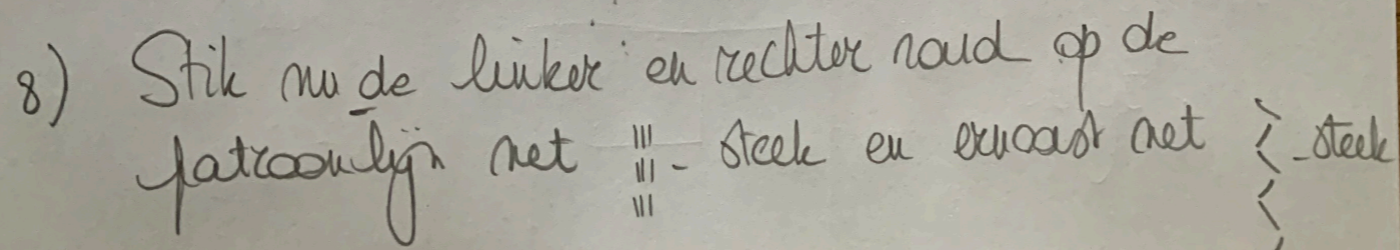 8) Stik nu de linker en rechter naad op de
patroonlijn met ||| - steek en ernaast met -steek